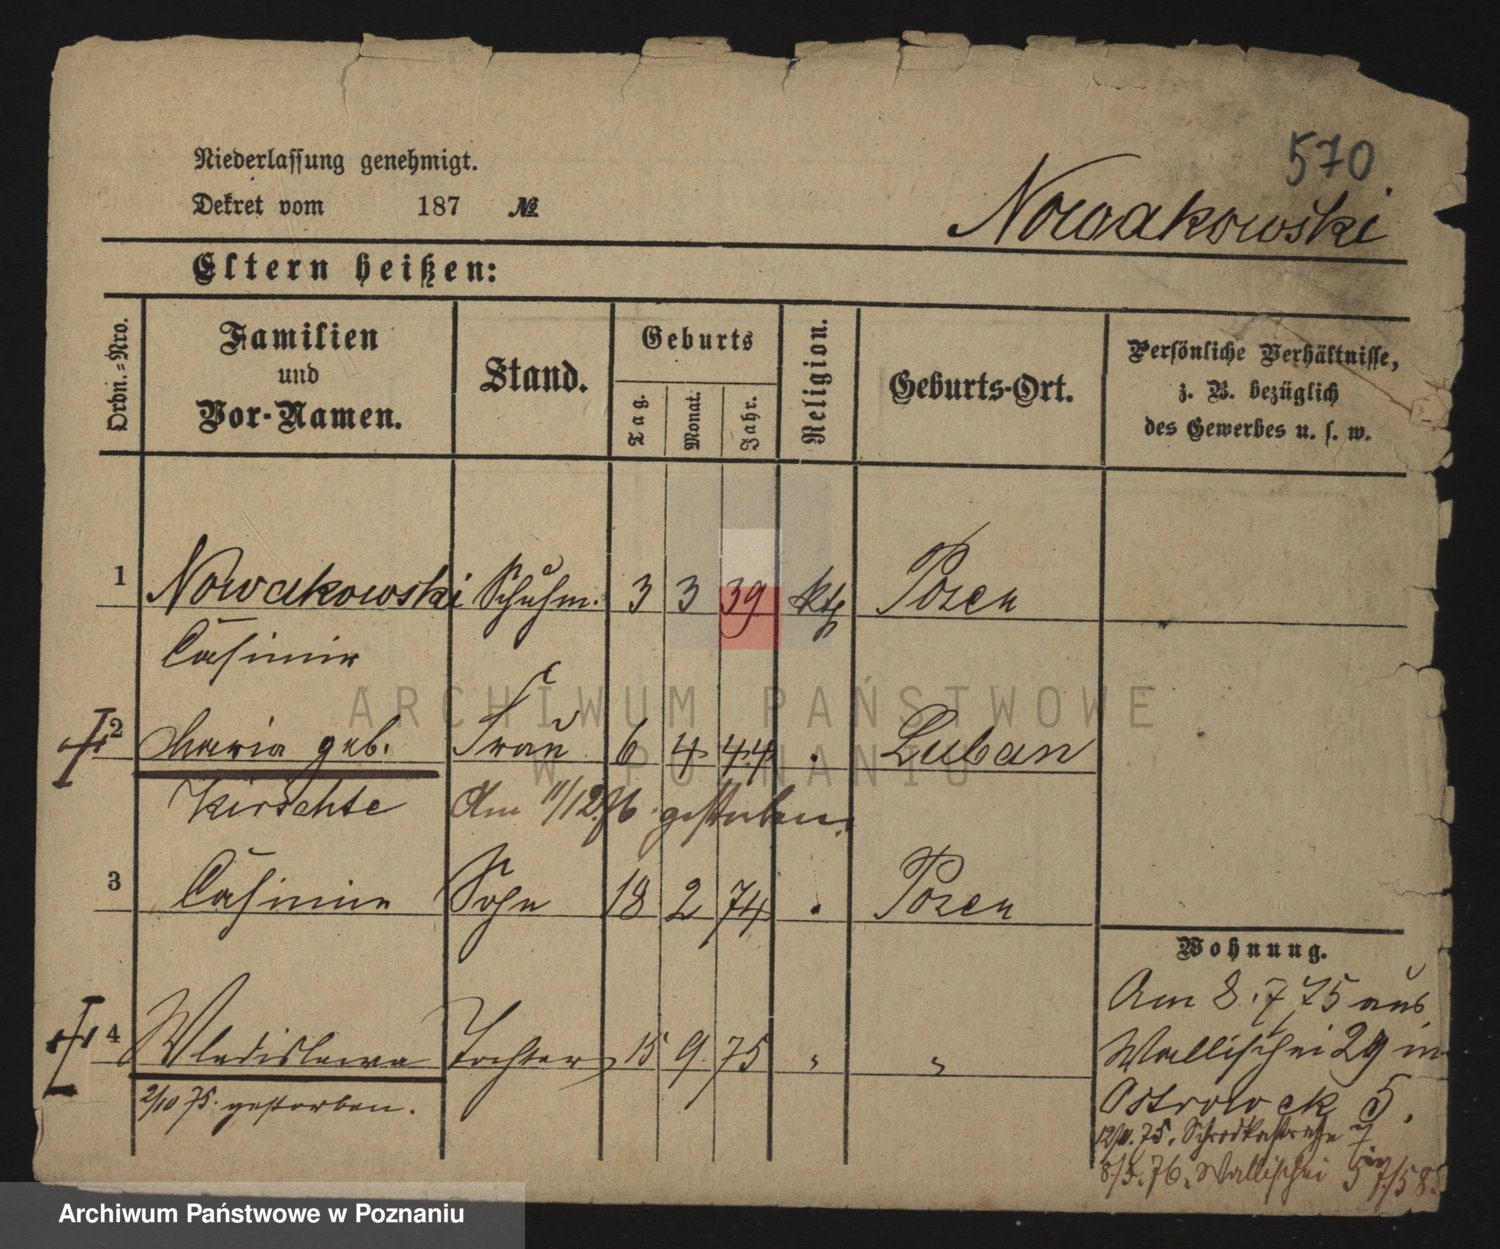 570
Niederlassung genehmigt.
Dekret vom 187 №
Nowakowski
Eltern heißen:
Ordn.-Nro.
Familien und Vor-Namen.
Stand.
Geburts
Tag.
Monat.
Jahr.
Religion.
Geburts-Ort.
Persönliche Verhältnisse,
z. B. bezüglich
des Gewerbes u. s. w.
1 Nowakowski Schuhm. 3 3 39 kth Posen
Casimir
2 Maria geb. Frau 6 4 44 " Luban
Kirschte Am 11/12 76 gestorben.
3 Casimir Sohn 18 2 74 " Posen
Wohnung.
4 Wladislawa Tochter 15 9 75 " "
2/10 75. gestorben.
Am 8.7 75 aus
Wallischei 29 in
Ostrowek 5.
75. Schrodkastraße 7
8/5. 76. Wallischei
ARCHIWUM PAŃSTWOWE
W POZNANIU
Archiwum Państwowe w Poznaniu